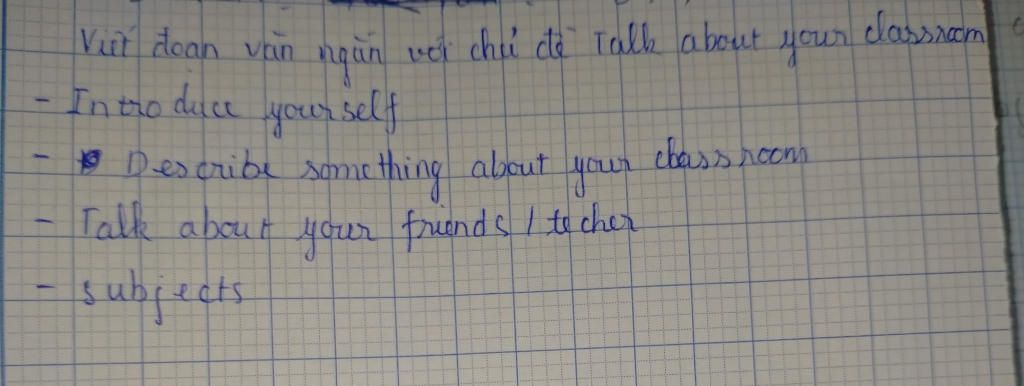 Viết đoạn văn ngắn với chủ đề Talk about your classroom
- Introduce yourself
- Describe something about your classroom
- Talk about your friends / techer
- subjects